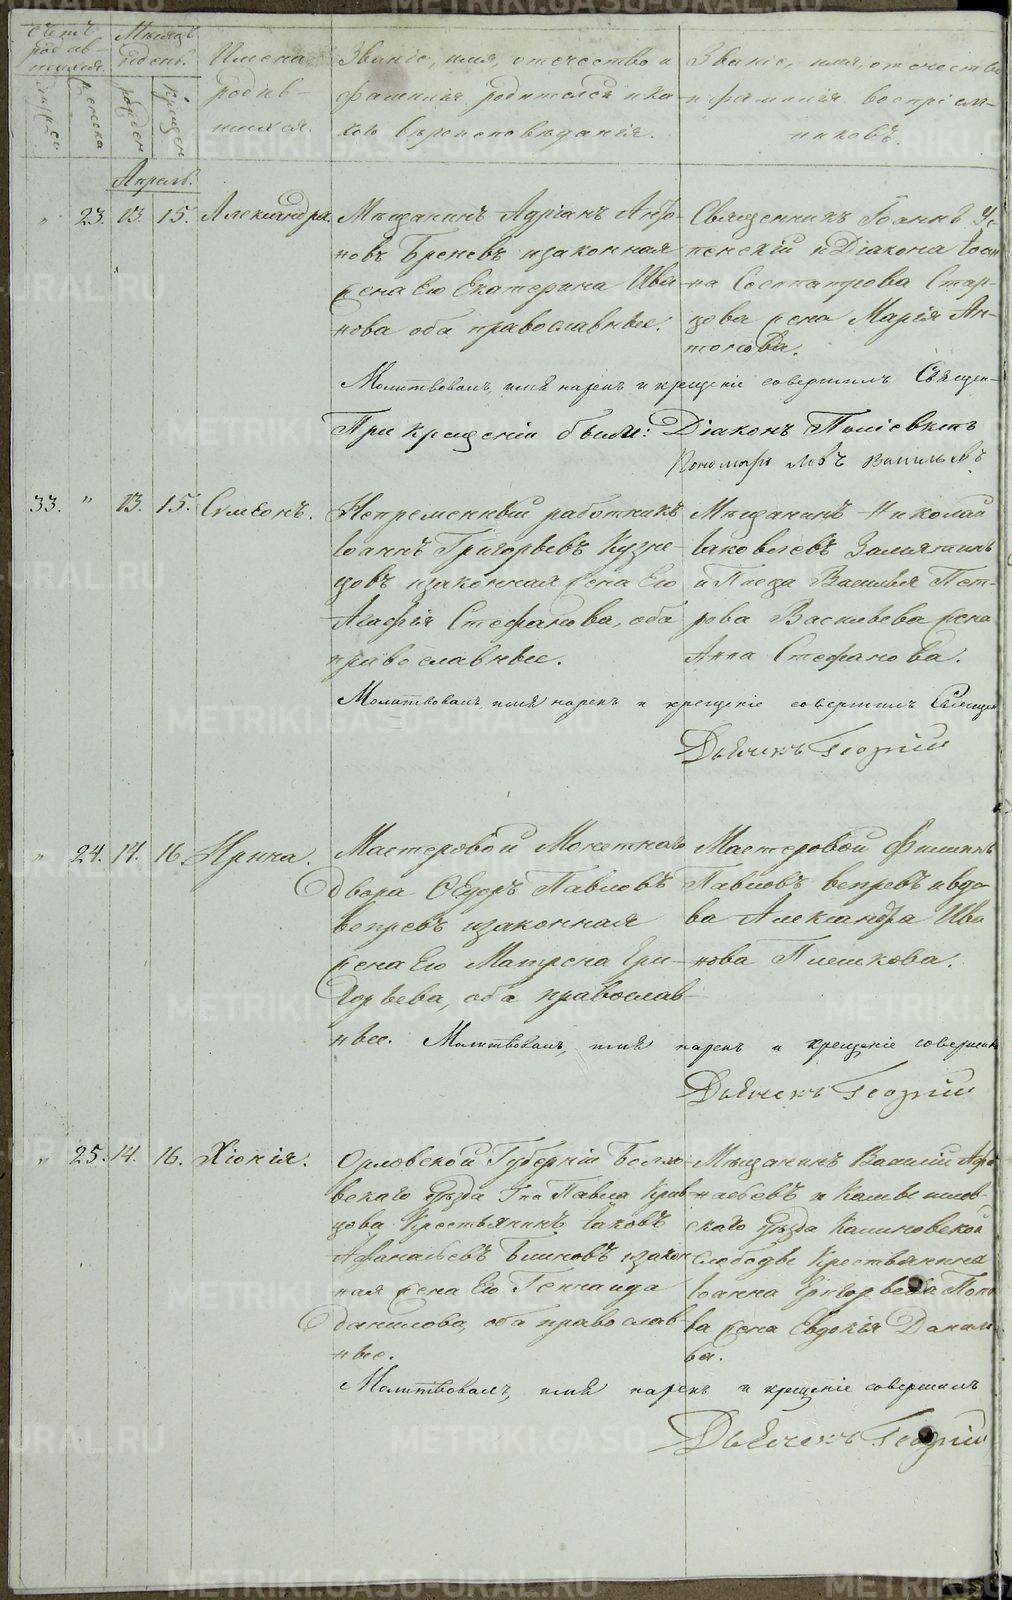 Счетъ родив-шихся.
Мѣсяцъ и день.
Имена родив-шихся.
Званіе, имя, отечество и фамилія родителей и ка-кого вѣроисповѣданія.
Званіе, имя, отечество и фамилія воспріем-никовъ.
Женска
рожден
крещен
Апрель.
" 23. 13. 15. Александра.
Мѣщанинъ Адріанъ
новъ Бреневъ и законная
жена Его Екатерина Ива-
нова оба православные.
Священникъ Іоаннъ Ус-
пенскій и Діакона
на Сосипатрова Стар-
цева жена Марія Ан-
тонова.
Молитвовалъ, имя нарекъ и крещеніе совершилъ Священ-
При крещеніи были: Діаконъ
Пономарь Левъ Васильевъ
33. " 13. 15. Сѵмеонъ.
Непременный работникъ
Іоаннъ Григорьевъ Кузне-
цовъ и законная жена Его
Агафія Стефанова, оба
православные.
Мѣщанинъ Николай
Іаковлевъ Замятинъ
и Васильева жена
Анна Стефанова.
Молитвовалъ имя нарекъ и крещеніе совершилъ Священ
Дьячекъ Георгій
" 24. 14. 16. Ирина.
Мастеровой Монетнаго
Двора Ѳедоръ Павловъ
Вепревъ и законная
жена Его Матрена Гри-
горьева, оба православ-
ные.
Мастеровой Филиппъ
Павловъ Вепревъ и вдо-
ва Александра Ива
нова Пешкова.
Молитвовалъ, имя нарекъ и крещеніе совершилъ
Дьячекъ Георгій
" 25. 14. 16. Хіонія.
Орловской Губерніи
скаго уѣзда Гна Павла Крив-
цова Крестьянинъ Іаковъ
Афанасьевъ Блиновъ и закон
ная жена Его Геннаида
Данилова, оба православ-
ные.
Мѣщанинъ Василій Афа
насьевъ и Камышлов-
скаго уѣзда Калиновской
слободы Крестьянина
Іоанна Григорьева Попо
ва жена Евдокія Данило
ва.
Молитвовалъ, имя нарекъ и крещеніе совершилъ
Дьячекъ Георгій
METRIKI.GASO-URAL.RU